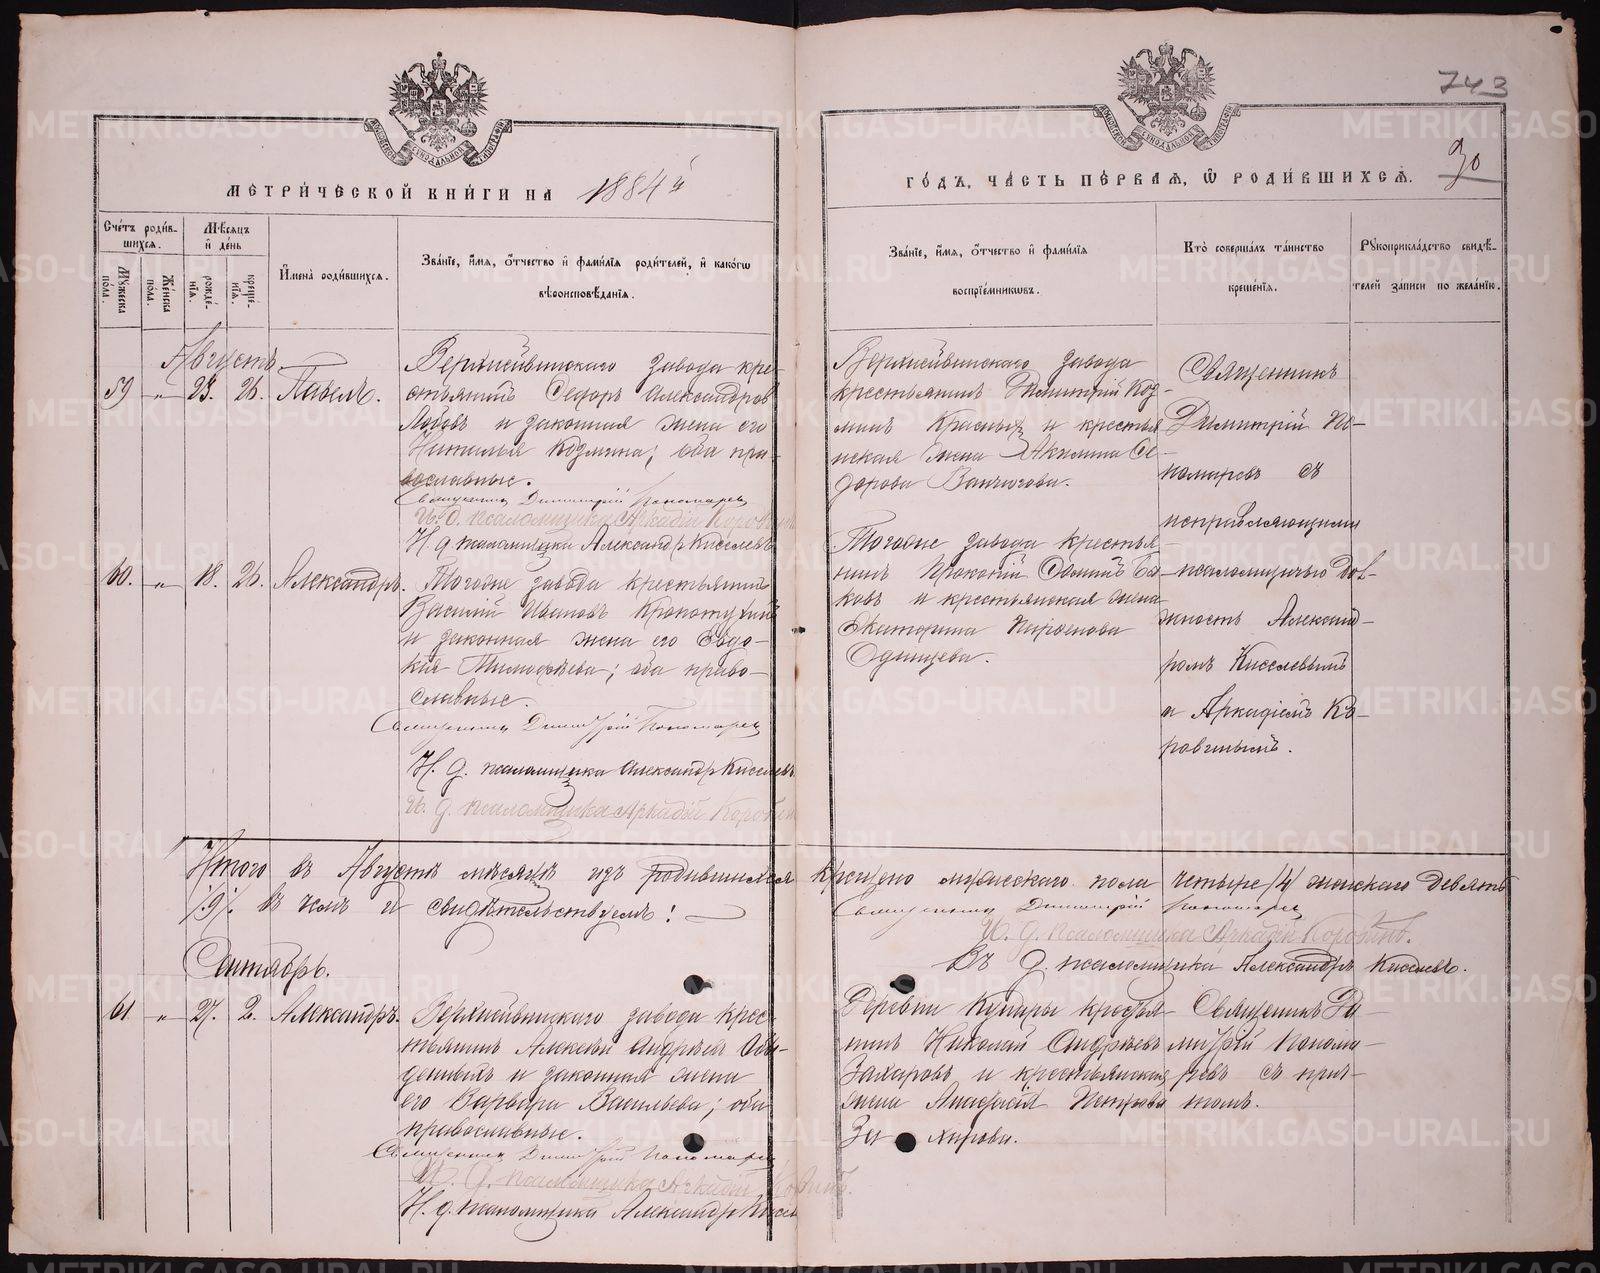 743
30
МЕТРИЧЕСКОЙ КНИГИ НА 1884й
ГОДЪ, ЧАСТЬ ПЕРВАЯ, Ѿ РОДИВШИХСЯ.
Счетъ родив-
шихся.
Мѣсяцъ
и день
Мужеска
пола.
Женска
пола.
рожде-
нія.
креще-
нія.
Имена родившихся.
Званіе, имя, отчество и фамилія родителей, и какого
вѣроисповѣданія.
Званіе, имя, отчество и фамилія
воспріемниковъ.
Кто совершалъ таинство
крещенія.
Рукоприкладство свидѣ-
телей записи по желанію.
Августъ
59 " 23. 26. Павелъ.
Верхнейвинскаго завода кре-
стьянинъ Федоръ Александров
и законная жена его
Наталья Козмина; оба пра-
вославные.
Священникъ Димитрій Пономаревъ
И. д. псаломщика Аркадій Коровинъ
И. д. псаломщика Александръ Киселевъ
Верхнейвинскаго завода
крестьянинъ Димитрій Коз-
минъ Красныхъ и крестья
нская жена Акилина Фе-
дорова
Священникъ
Димитрій По-
номаревъ съ
исправляющими
псаломщичью дол-
жность Александ-
ромъ Киселевымъ
и Аркадіемъ Ко-
ровинымъ.
60. " 18. 26. Александръ.
Тогоже завода крестьянинъ
Василій Ивановъ
и законная жена его Евдо-
кія Тимофѣева; оба право-
славные.
Священникъ Димитрій Пономаревъ
И. д. псаломщика Александръ Киселевъ
И. д. псаломщика Аркадій Коровинъ
Тогоже завода крестья-
нинъ Прокопій
и крестьянская жена
Екатерина Парфенова
Одинцева.
Итого въ Августѣ мѣсяцѣ изъ родившихся крещено мужескаго пола четыре /4/ женскаго девять
/9/. въ чемъ и свидѣтельствуемъ!
Священникъ Димитрій Пономаревъ
И. д. псаломщика Аркадій Коровинъ.
И. д. псаломщика Александръ Киселевъ.
Сентябрь.
61 " 27. 2. Александръ.
Верхнейвинскаго завода крес-
тьянинъ Алексѣй Андрѣевъ
и законная жена
его Варвара Васильева; оба
православные.
Священникъ Димитрій Пономаревъ
И. д. псаломщика Аркадій Коровинъ.
И. д. псаломщика Александръ Киселевъ
Деревни Кунары крестья-
нинъ Николай Андрѣевъ
Захаровъ и крестьянская
жена Анастасія Петрова
Захарова.
Священникъ Ди-
митрій Понома-
ревъ съ прич-
томъ.
METRIKI.GASO-URAL.RU